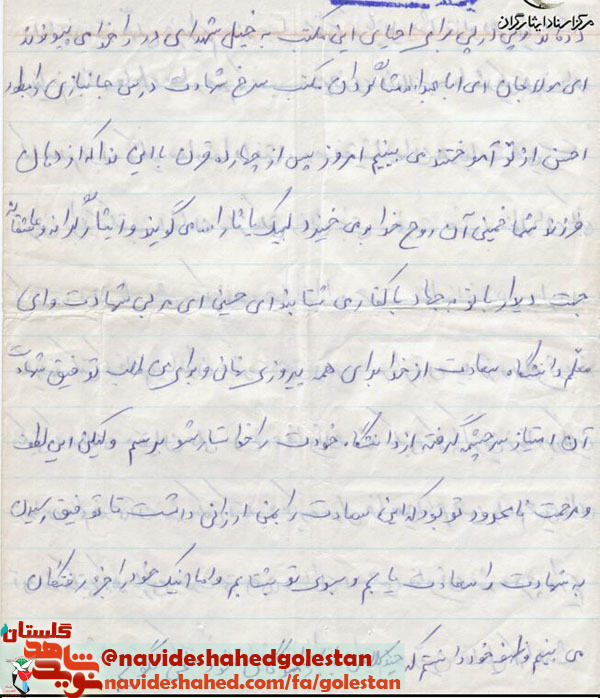 مرکز اسناد ایثارگران
داده‌اند و پی در پی برای احیای این مکتب به خیل شهدای در راه خدای پیوندند
ای مولا جان ای اباعبدالله شاگردان مکتب سرخ شهادت درس جانبازی را بطور
احسن از تو آموختند می بینیم امروز پس از چهارده قرن با این ندا که از دهان
فرزند شما خمینی آن روح خدا بر می خیزد لبیک یا ثارالله می گویند و ایثارگرانه و عاشقانه
جهت دیدار با تو به جهاد با کفار می شتابند ای حسین ای مربی شهادت و ای
معلم دانشگاه سعادت از خدا برای همه پیروزی نهائی و برای من طلب توفیق شهادت
آن امتیاز سرچشمه گرفته از دانشگاه خودت را خواستار شو میرسم ولیکن این لطف
و مرحمت نامحدود تو بود که این سعادت را بمن ارزانی داشت تا توفیق رسیدن
به شهادت را سعادت یابم و بسوی تو بشتابم و اما اینک خود را جزء رفتگان
می بینم وظیفه خود دانستم که چند کلامی
گلستان
نوید شاهد
@navideshahedgolestan
navideshahed.com/fa/golestan